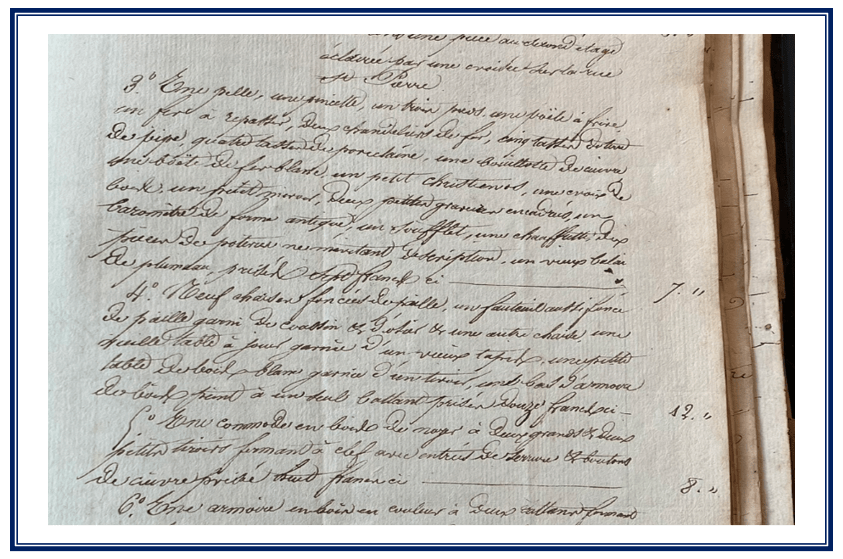 une pièce au second étage
éclairée par une croisée sur la rue
St Pierre
3.° Une pelle, une pincette, un trois pieds, une poële à frire
un fer à repasser, deux chandeliers de fer, cinq tasses de terre
de pipe, quatre tasses de porcelaine, une bouillotte de cuivre
une boëte de fer blanc, un petit christ en os, une croix de
bois, un petit miroir, deux petites gravures encadrées, un
baromètre de forme antique, un soufflet, une chaufferette, dix
pièces de poterie ne méritant description, un vieux balai
de plumeau, prisés sept francs ci 7. "
4.° Neuf chaises foncées de paille, un fauteuil aussi foncé
de paille garni de coussin & une autre chaise une
table à jouer garnie d'un vieux tapis, une petite
table de bois blanc garnie d'un tiroir, un bas d'armoire
de bois peint à un seul battant prisés douze francs ci 12. "
5.° Une commode en bois de noyer à deux grands & deux
petits tiroirs fermant à clef avec entrées de serrure & boutons
de cuivre prisée huit francs ci 8. "
6.° Une armoire en bois en couleur à deux battans fermant